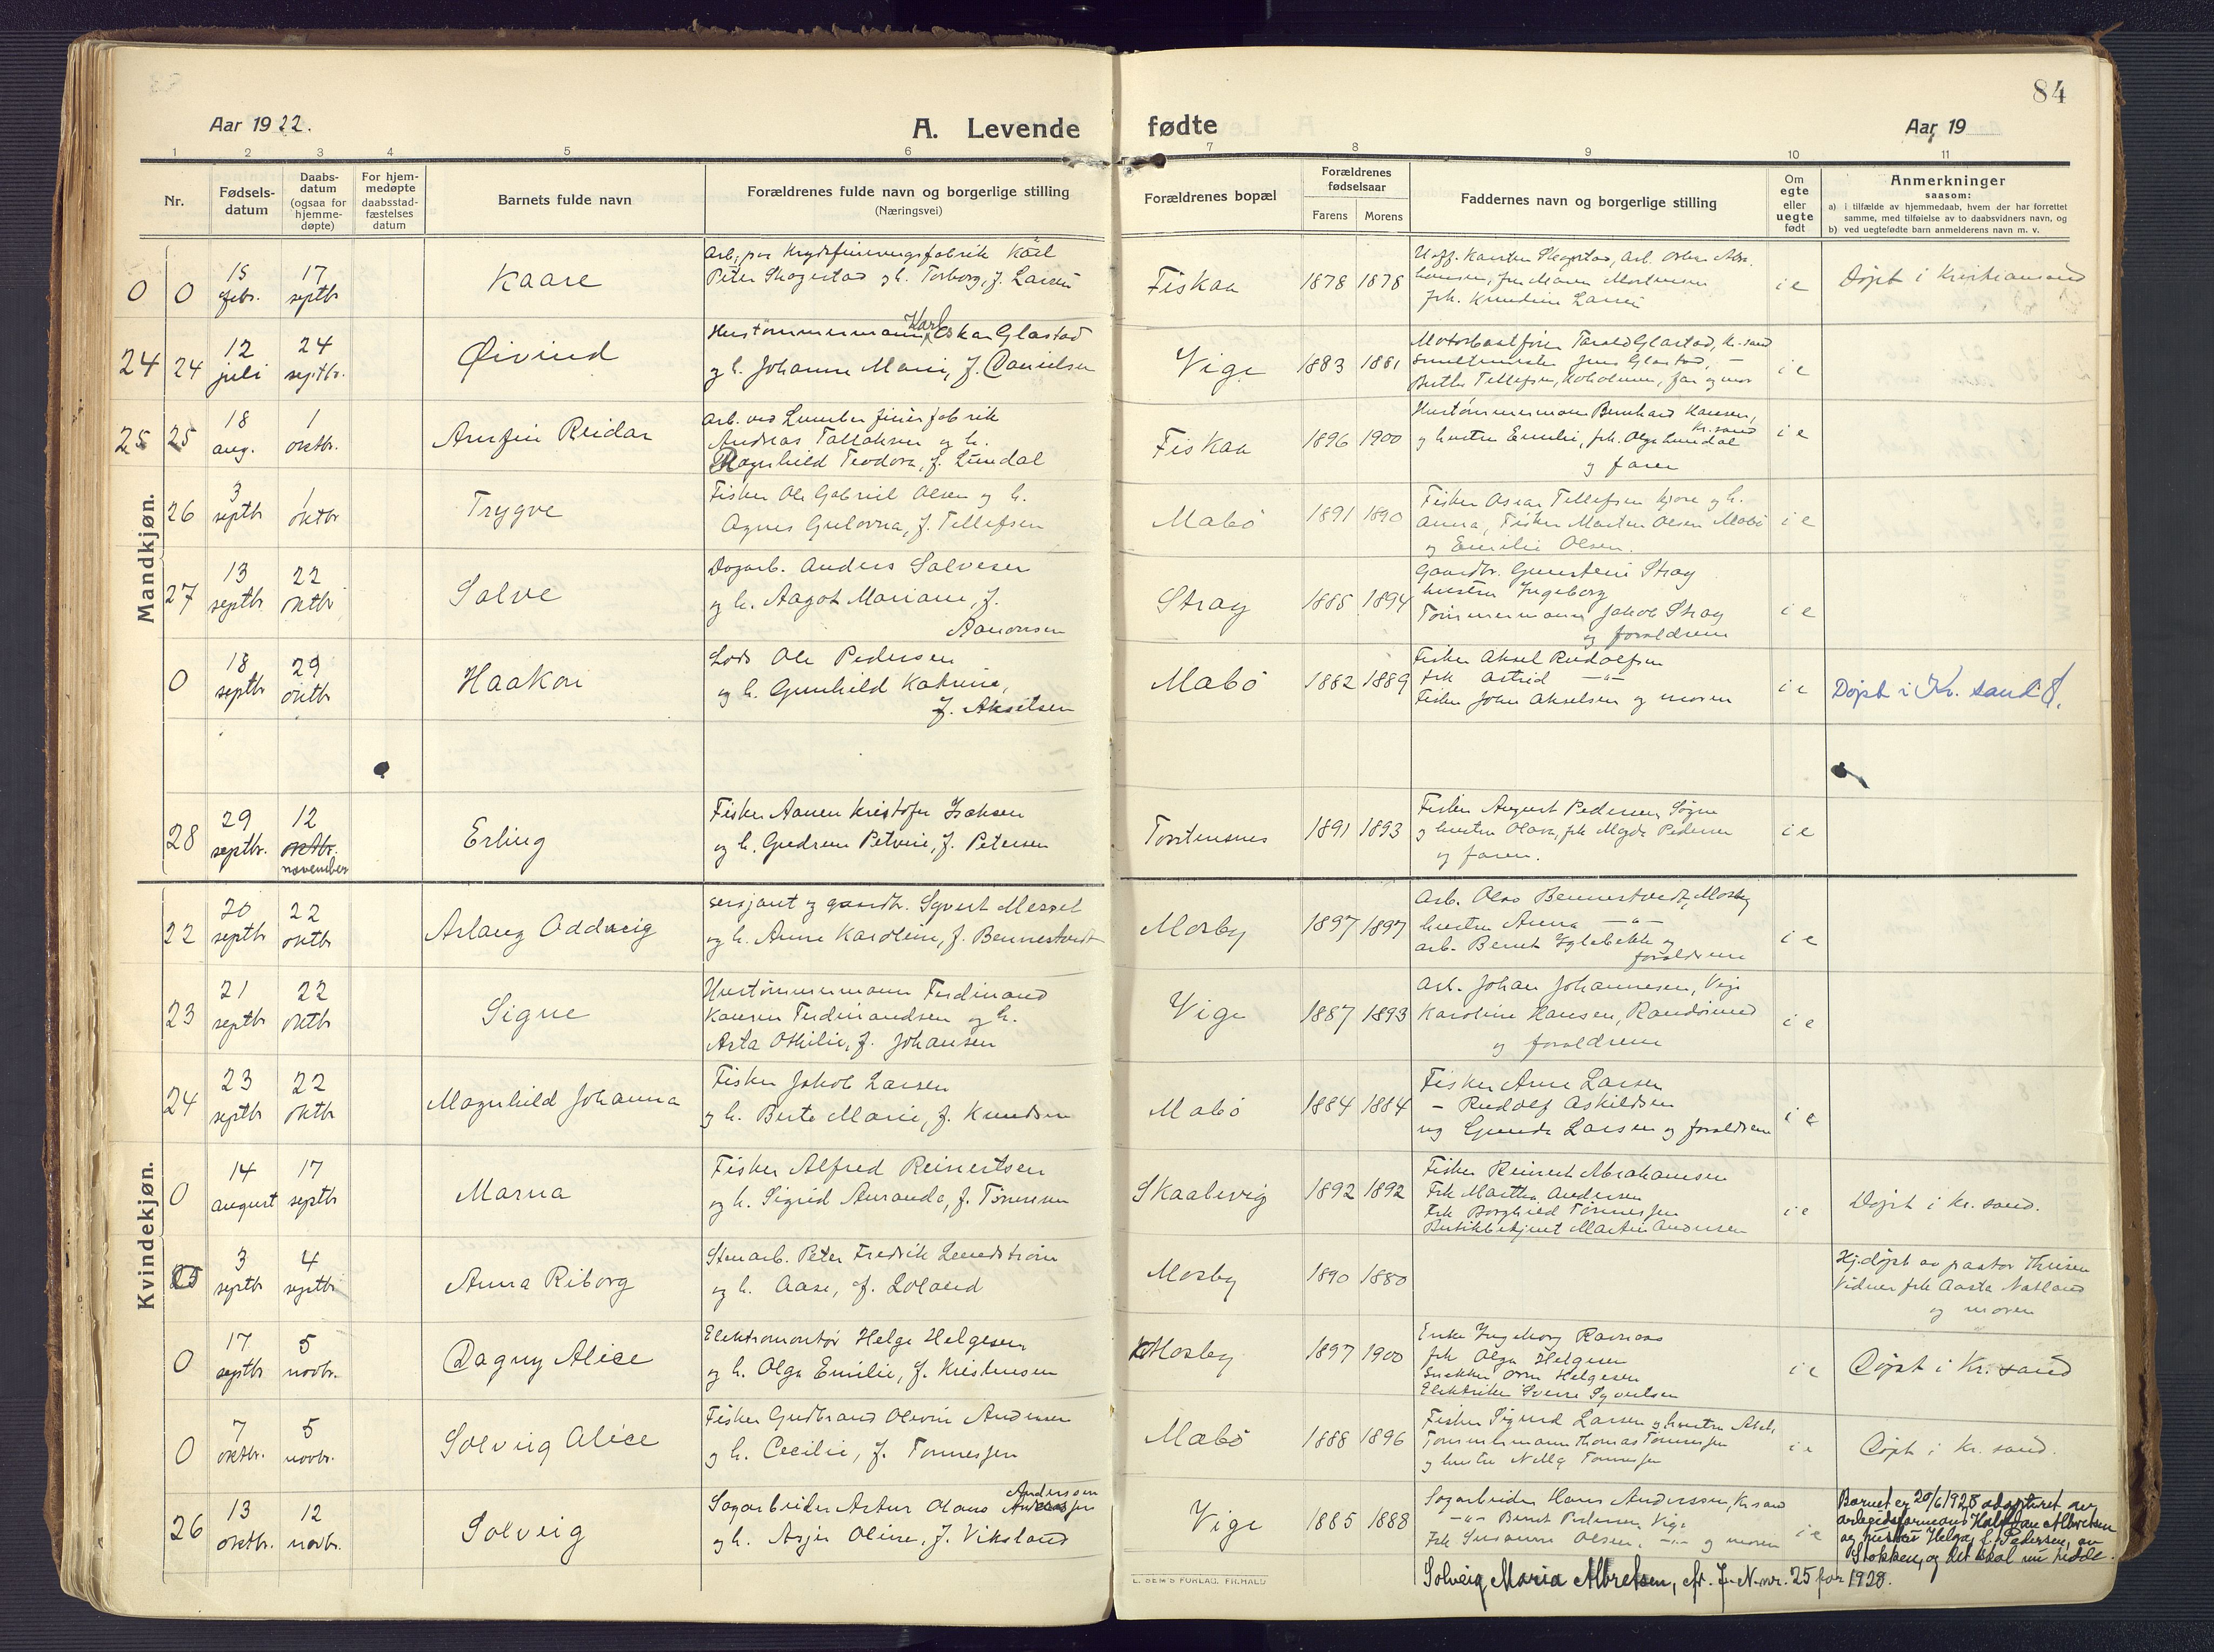 84
Aar 1922.
A. Levende fødte
Aar 19
1 2 3 4 5 6 7 8 9 10 11
Nr.
Fødsels-
datum
Daabs-
datum
(ogsaa for
hjemme-
døpte)
For hjem-
medøpte
daabsstad-
fæstelses
datum
Barnets fulde navn
Forældrenes fulde navn og borgerlige stilling
(Næringsvei)
Forældrenes bopæl
Forældrenes
fødselsaar
Farens Morens
Faddernes navn og borgerlige stilling
Om
egte
eller
uegte
født
Anmerkninger
saasom:
a) i tilfælde av hjemmedaab, hvem der har forrettet
samme, med tilføielse av to daabsvidners navn, og
b) ved uegtefødte barn anmelderens navn m. v.
Mandkjøn.
0 0
15
febr.
17
septbr
Kaare
Karl
Peter Skogestad og h. Torborg, f. Larsen
Fiskaa
1878 1878
frk. Larsen
i e
Døpt i Kristiansand
24 24
12
juli
24
septbr.
Øivind
Hustømmermann Karl Oskar Glastad
og h. Johanne Marie, f. Danielsen
Vige
1883 1881
Motorbaatfører Tarald Glastad, Kr.sand
Jens Glastad, —
Tellefsen, far og mor
i e
25 25
18
aug.
1
oktbr.
Arnfin Reidar
Arb. ved Lumber finérfabrik
Andreas Tallaksen og h.
Magnhild Teodora, f. Lundal
Fiskaa
1896 1900
Hustømmermann Bernhard Hansen,
Kr.sand
og hustru Emilie, frk. Olga Lundal
og faren
i e
26
3
septbr
1
oktbr
Trygve
Fisker Ole Gabriel Olsen og h.
Agnes Gulovna, f. Tellefsen
Mabø
1891 1890
Fisker Oskar Tellefsen Kjøre og h.
Anna, Fisker Martin Olsen Mabø
og Emilie Olsen.
i e
27
13
septbr
22
oktbr
Salve
Dagarb. Anders Salvesen
og h. Aagot Mariane, f.
Aanonsen
Stray
1885 1894
Gaardbr. Gunstein Stray
hustru Ingeborg
Tømmermann Jakob Stray
og forældrene
i e
0
18
septbr
29
oktbr
Haakon
Lods Ole Pedersen
og h. Gunhild Katrine,
f. Akselsen
Mabø
1882 1889
Fisker Aksel Rudolfsen
Frk Astrid —"—
Fisker John Akselsen og moren
i e
Døpt i Kr. sand S.
28
29
septbr.
12
oktbr.
november
Erling
Fisker Aanen Kristofer Isaksen
og h. Gudrun Petrine, f. Petersen
Torstensnes
1891 1893
Fisker August Pedersen, Søgne
og hustru Olava, frk Magda Pedersen
og faren.
i e
Kvindekjøn.
22
20
septbr
22
oktbr
Aslaug Oddveig
Sersjant og gaardbr. Syvert Messel
og h. Anne Karoline, f. Bennestvedt
Mosby
1897 1897
Arb. Olav Bennestvedt, Mosby
hustru Anna —"—
arb. Bernt Iglebekk og
forældrene
i e
23
21
septbr
22
oktbr
Signe
Hustømmermann Ferdinand
Hansen Ferdinandsen og h.
Asta Othilie, f. Johansen
Vige
1887 1893
Arb. Johan Johannesen, Vige
Karoline Hansen, Randøsund
og forældrene
i e
24
23
septbr
22
oktbr
Magnhild Johanna
Fisker Jakob Larsen
og h. Berte Marie, f. Knudsen
Mabø
1884 1884
Fisker Arne Larsen
— Rudolf Askildsen
ug Gunda Larsen og forældrene
i e
0
14
august
17
septbr
Marna
Fisker Alfred Reinertsen
og h. Sigrid Amanda, f. Tønnesen
Skaalevig
1892 1892
Fisker Reinert Abrahamsen
Frk Martha Andersen
Frk Borghild Tønnessen
Butikbetjent Martin Andersen
i e
Døpt i Kr. sand.
25
3
septbr
4
septbr
Anna Riborg
Stenarb. Peter Fredrik Lundstrøm
og h. Aase, f. Loland
Mosby
1890 1880
Hj.døpt av pastor Thrisen
Vidner frk Aasta Natland
og moren
0
17
septbr
5
novbr.
Dagny Alice
Elektromontør Helge Helgesen
og h. Olga Emilie, f. Kristensen
Mosby
1897 1900
Enke Ingeborg Ravnaas
frk Olga Helgesen
Snekker Orm Helgesen
Elektriker Sverre Syvertsen
i e
Døpt i Kr. sand
0
7
oktbr.
5
novbr.
Solveig Alice
Fisker Gudbrand Olevin Andersen
og h. Cecilie, f. Tønnessen
Mabø
1888 1896
Fisker Sigurd Larsen og hustru
Tømmermann Thomas Tønnessen
og hustru Nelly Tønnessen
i e
Døpt i Kr. sand.
26
13
oktbr.
12
novbr.
Solveig
Anderssen
Sagarbeider Artur Olaus
og h. Asja Oline, f. Viksland
Vige
1885 1888
Sagarbeider Hans Anderssen, Kr.sand
—"— Bernt Pedersen, Vige
Frk Susanne Olsen, —"— og moren
i e
Barnet er 20/6 1928 adoptert av
arbeidsformand Halfdan Albretsen
og hustru Helga f. Pedersen, av
Stokken, og det skal nu hedde
Solveig Maria Albretsen, cfr. J. N. nr. 25 for 1928.
E. SEM'S FORLAG, FR.HALD